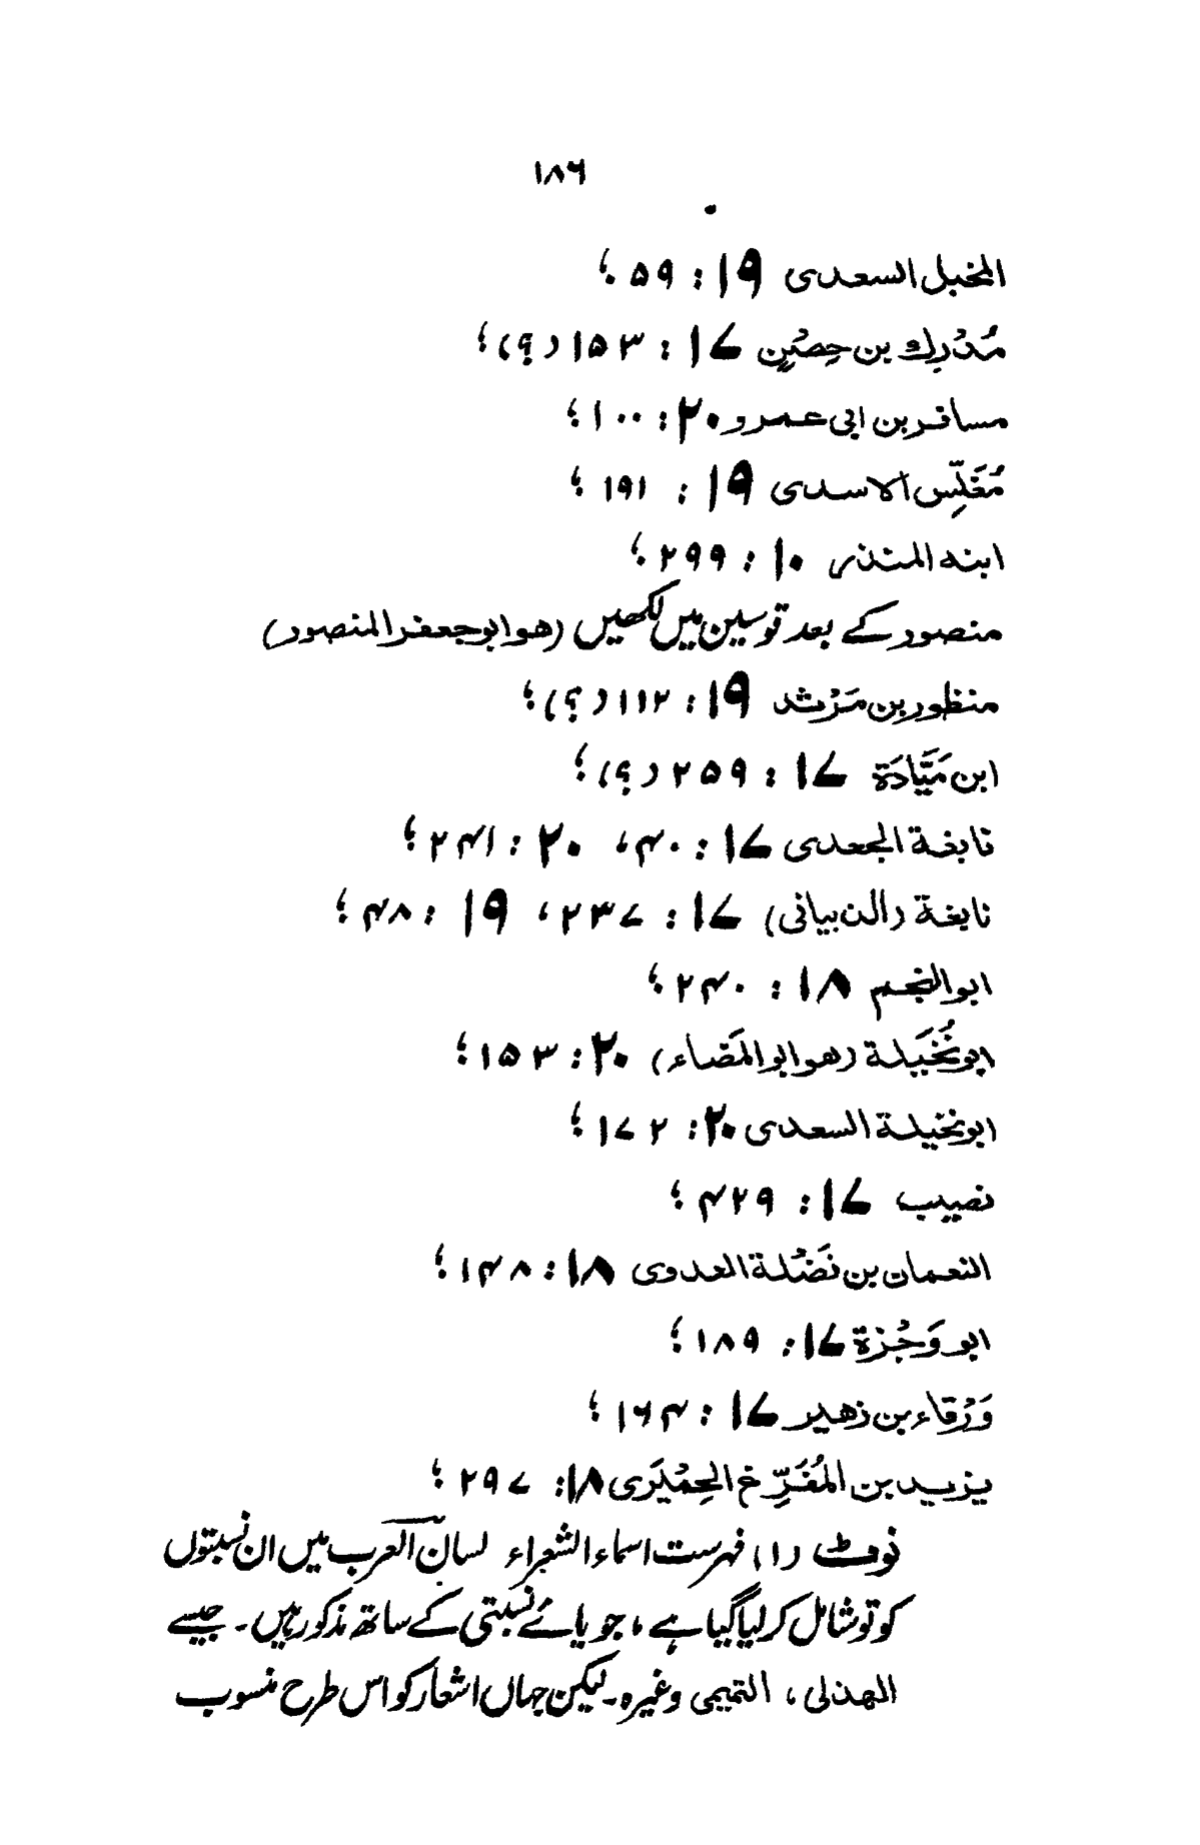 ۱۸۶
المخبل السعدی ۱۹: ۵۹؛
مُدْرِك بن حِصْنٍ ۱۷: ۱۵۳ (؟)؛
مسافر بن ابی عمرو ۲۰: ۱۰۰؛
مُغَلِّس الاسدی ۱۹: ۱۹۱؛
ابنه المنذر ۱۰: ۲۹۹؛
منصور کے بعد قوسین میں لکھیں (هو ابو جعفر المنصور)
منظور بن مَرْثد ۱۹: ۱۱۲ (؟)؛
ابن مَيَّادَة ۱۷: ۲۵۹ (؟)؛
نابغة الجعدی ۱۷: ۴۰، ۲۰: ۲۴۱؛
نابغة (الذبیانی) ۱۷: ۲۳۷، ۱۹: ۴۸؛
ابو النجم ۱۸: ۲۴۰؛
ابو نُخَيلة (هو ابو المَضاء) ۲۰: ۱۵۳؛
ابو نخیلة السعدی ۲۰: ۱۷۲؛
نصیب ۱۷: ۴۲۹؛
النعمان بن نَضْلة العدوی ۱۸: ۱۴۸؛
ابو وَجْزة ۱۷: ۱۸۹؛
وَرْقاء بن زهیر ۱۷: ۱۶۴؛
یزید بن المُفَرِّغ الحِمْیَری ۱۸: ۲۹۷؛
نوٹ (۱) فہرست اسماء الشعراء لسان العرب میں ان نسبتوں
کو تو شامل کر لیا گیا ہے، جو یائے نسبتی کے ساتھ مذکور ہیں۔ جیسے
الهذلی، التمیمی وغیرہ۔ لیکن جہاں اشعار کو اس طرح منسوب